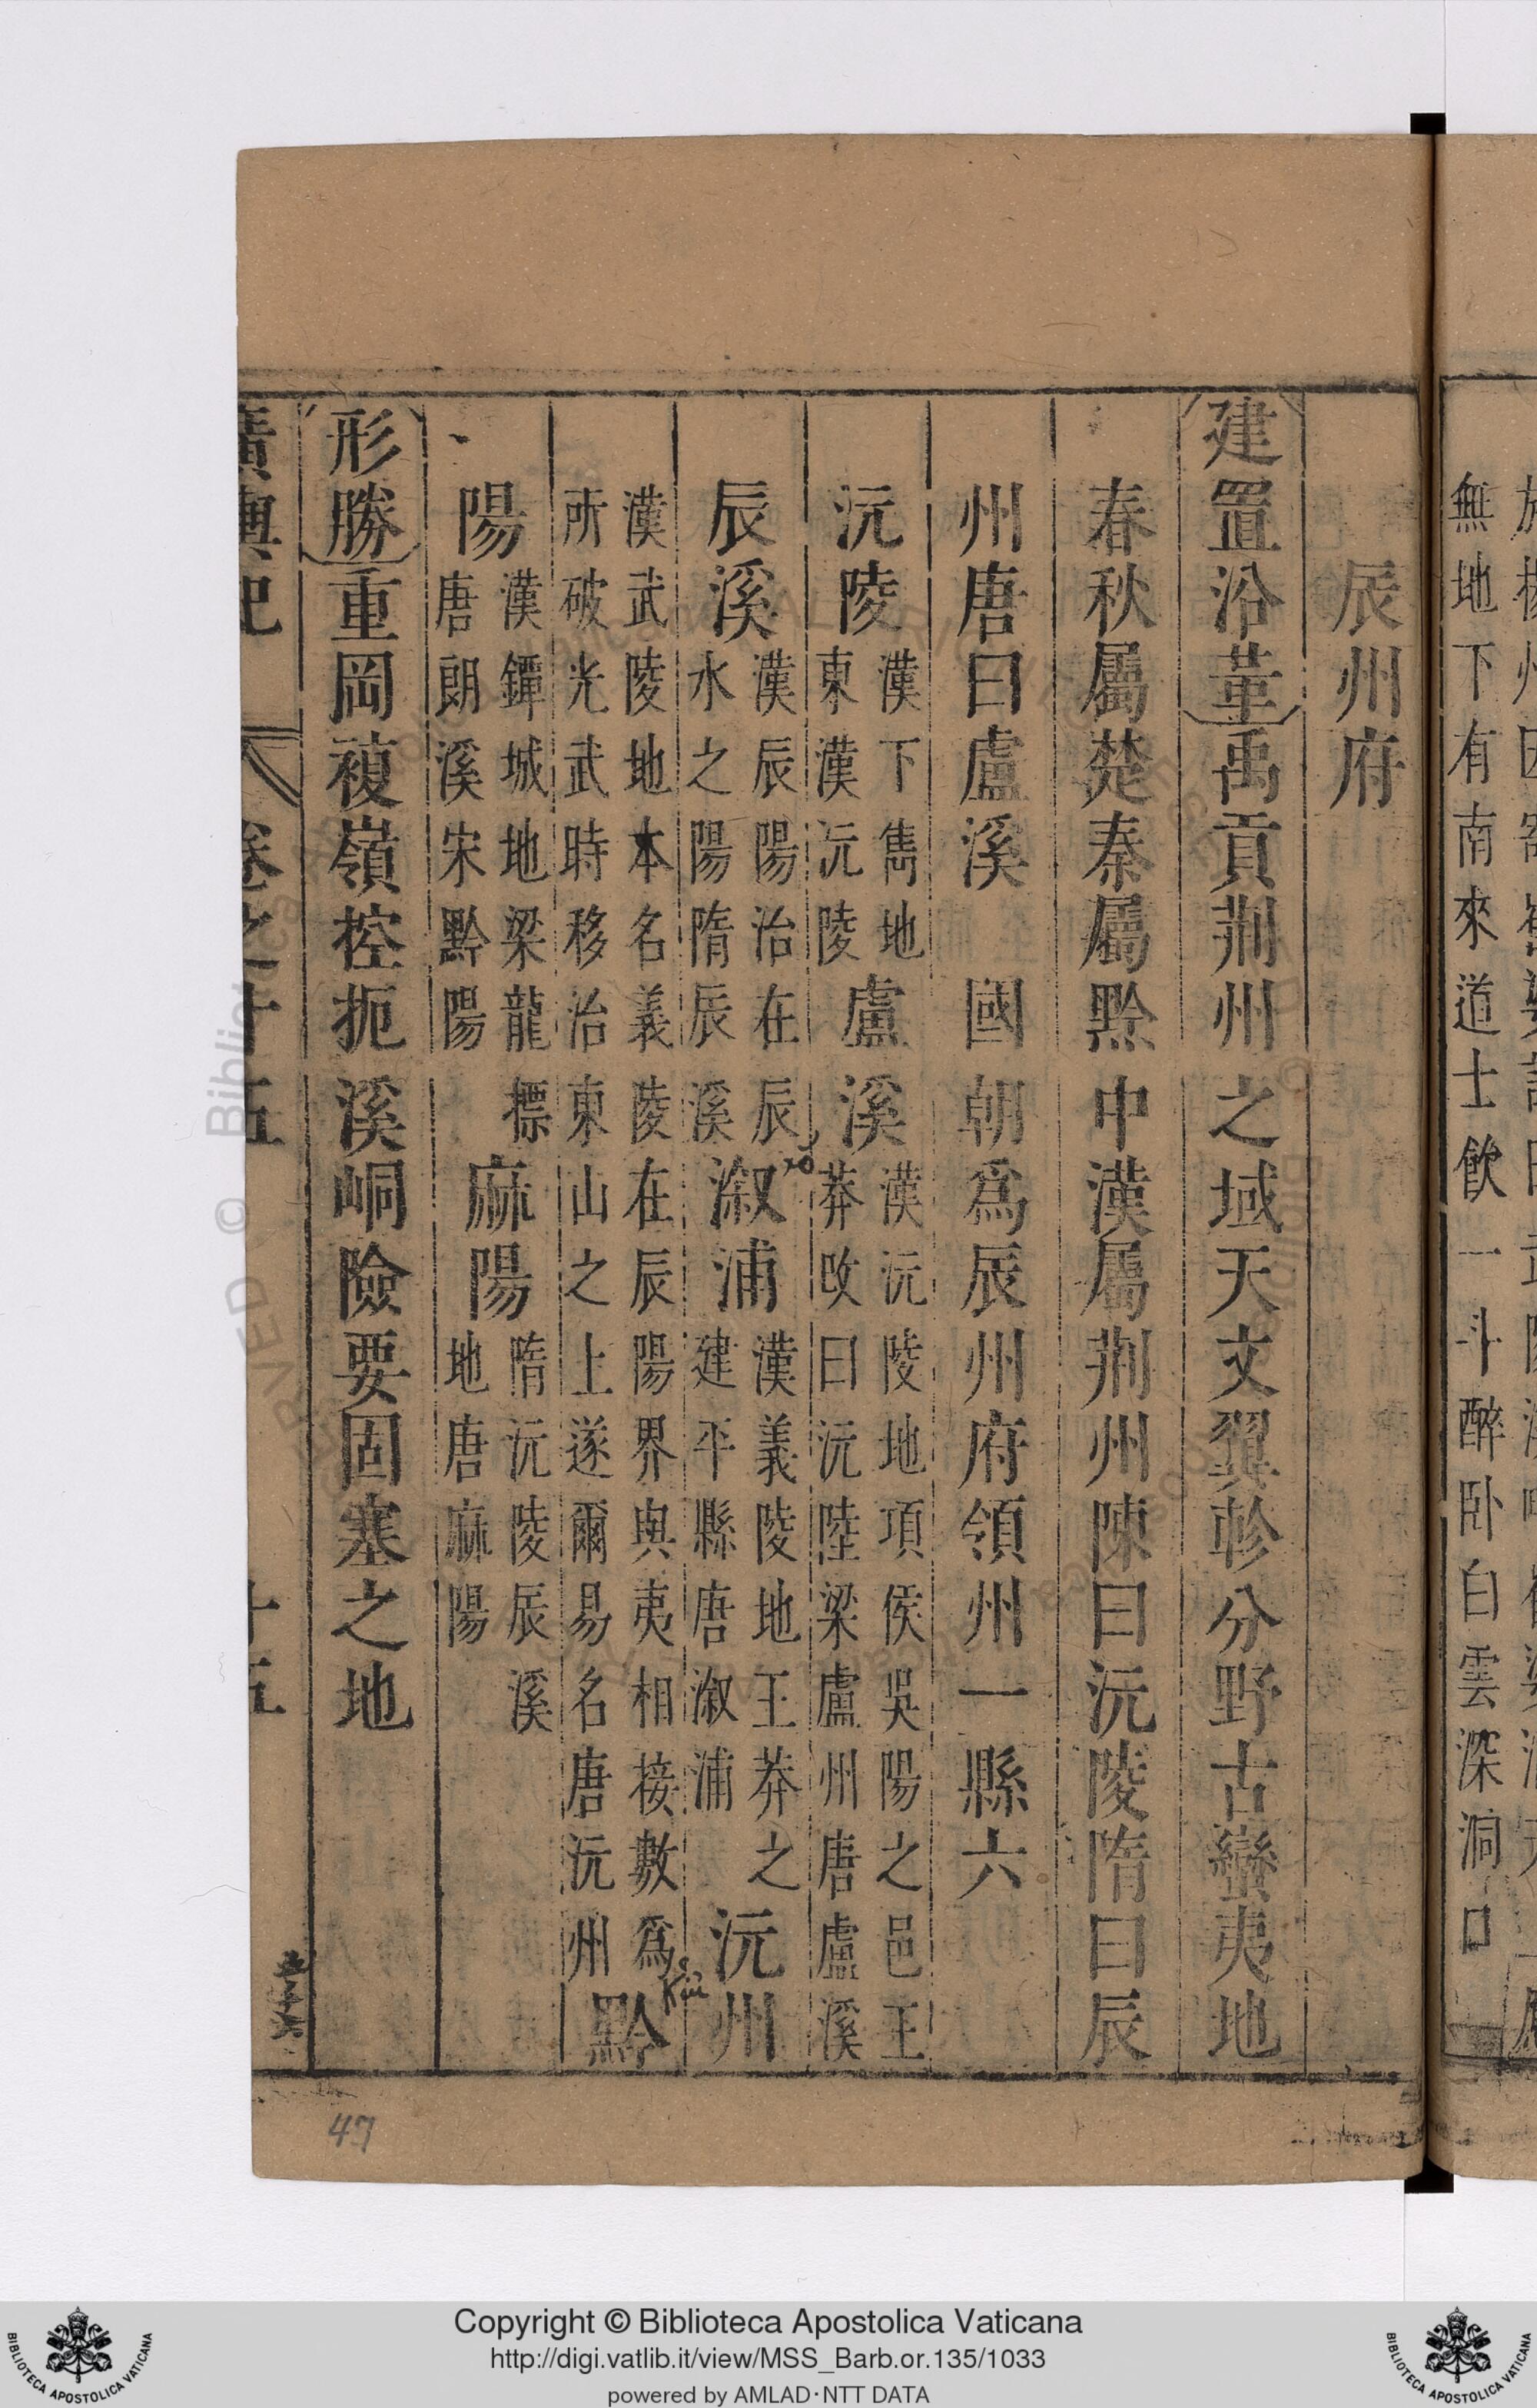 無地下有南來道士飲一斗醉卧白雲深洞口
辰州府
建置沿革禹貢荆州之域天文翼軫分野古蠻夷地
春秋屬楚秦屬黔中漢屬荆州陳曰沅陵隋曰辰
州唐曰盧溪　國朝爲辰州府領州一縣六
沅陵漢下雋地東漢沅陵盧溪漢沅陵地項侯吳陽之邑王莽改曰沅陸梁盧州唐盧溪
辰溪漢辰陽治在辰水之陽隋辰溪溆浦漢義陵地王莽之建平縣唐溆浦沅州
漢武陵地本名義陵在辰陽界與夷相接數爲所破光武時移治東山之上遂爾易名唐沅州黔
陽漢鐔城地梁龍標唐朗溪宋黔陽麻陽隋沅陵辰溪地唐麻陽
形勝重岡複嶺控扼溪峒險要固塞之地
廣輿記 卷之十五 十五
47
Copyright © Biblioteca Apostolica Vaticana
http://digi.vatlib.it/view/MSS_Barb.or.135/1033
powered by AMLAD·NTT DATA
BIBLIOTECA APOSTOLICA VATICANA
BIBLIOTECA APOSTOLICA VATICANA